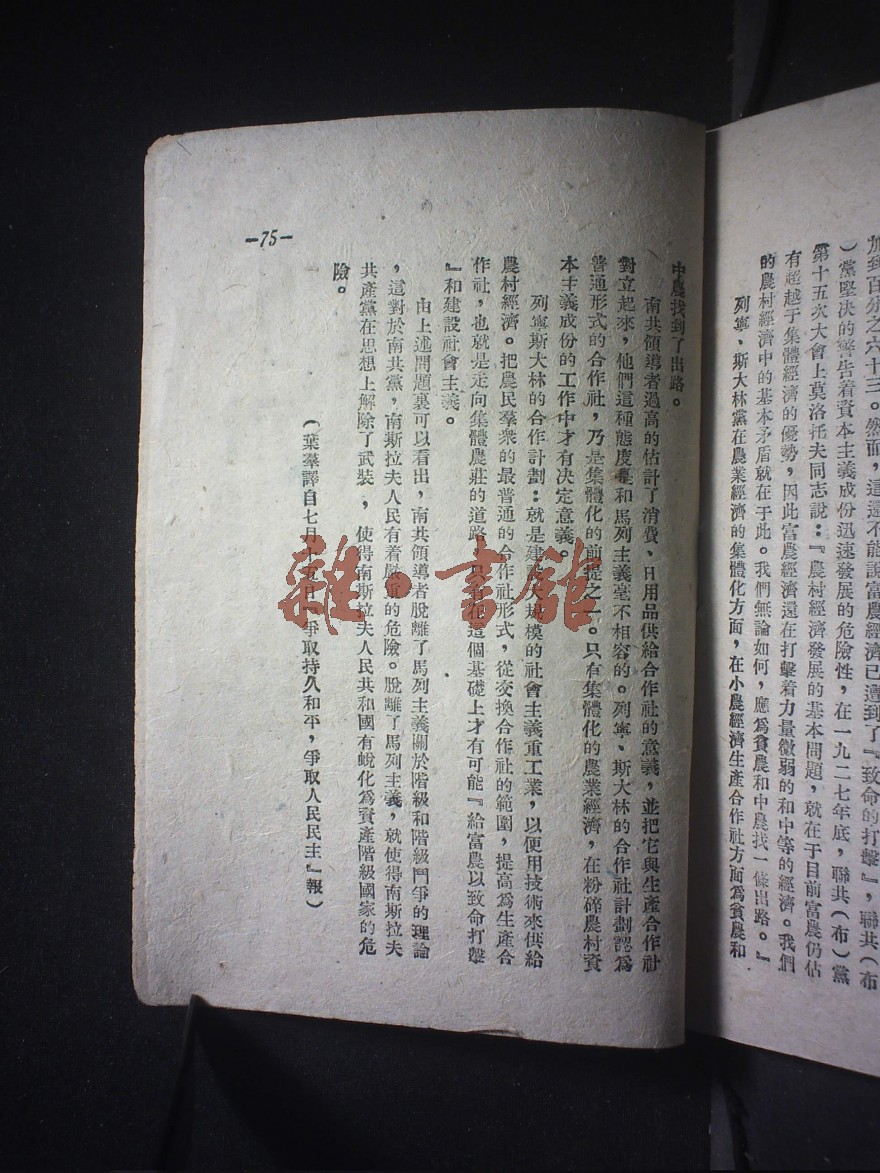 加到百分之六十三。然而，這還不能說富農經濟已遭到了『致命的打擊』，聯共（布
）黨堅決的警告着資本主義成份迅速發展的危險性，在一九二七年底，聯共（布）黨
第十五次大會上莫洛托夫同志說：『農村經濟發展的基本問題，就在于目前富農仍佔
有超越于集體經濟的優勢，因此富農經濟還在打擊着力量微弱的和中等的經濟。我們
的農村經濟中的基本矛盾就在于此。我們無論如何，應為貧農和中農找一條出路。』
列寧、斯大林黨在農業經濟的集體化方面，在小農經濟生產合作社方面為貧農和
中農找到了出路。
南共領導者過高的估計了消費、日用品供給合作社的意義，並把它與生產合作社
對立起來，他們這種態度是和馬列主義毫不相容的。列寧、斯大林的合作社計劃認為
普通形式的合作社，乃是集體化的前提之一。只有集體化的農業經濟，在粉碎農村資
本主義成份的工作中才有决定意義。
列寧斯大林的合作計劃：就是建設大規模的社會主義重工業，以便用技術來供給
農村經濟。把農民羣衆的最普通的合作社形式，從交換合作社的範圍，提高為生產合
作社，也就是走向集體農莊的道路，只有在這個基礎上才有可能『給富農以致命打擊
』和建設社會主義。
由上述問題裏可以看出，南共領導者脫離了馬列主義關於階級和階級鬥爭的理論
，這對於南共黨，南斯拉夫人民有着嚴重的危險。脫離了馬列主義，就使得南斯拉夫
共產黨在思想上解除了武裝，使得南斯拉夫人民共和國有蛻化為資產階級國家的危
險。
（葉羣譯自七月十五日『爭取持久和平，爭取人民民主』報）
—75—
雜·書館